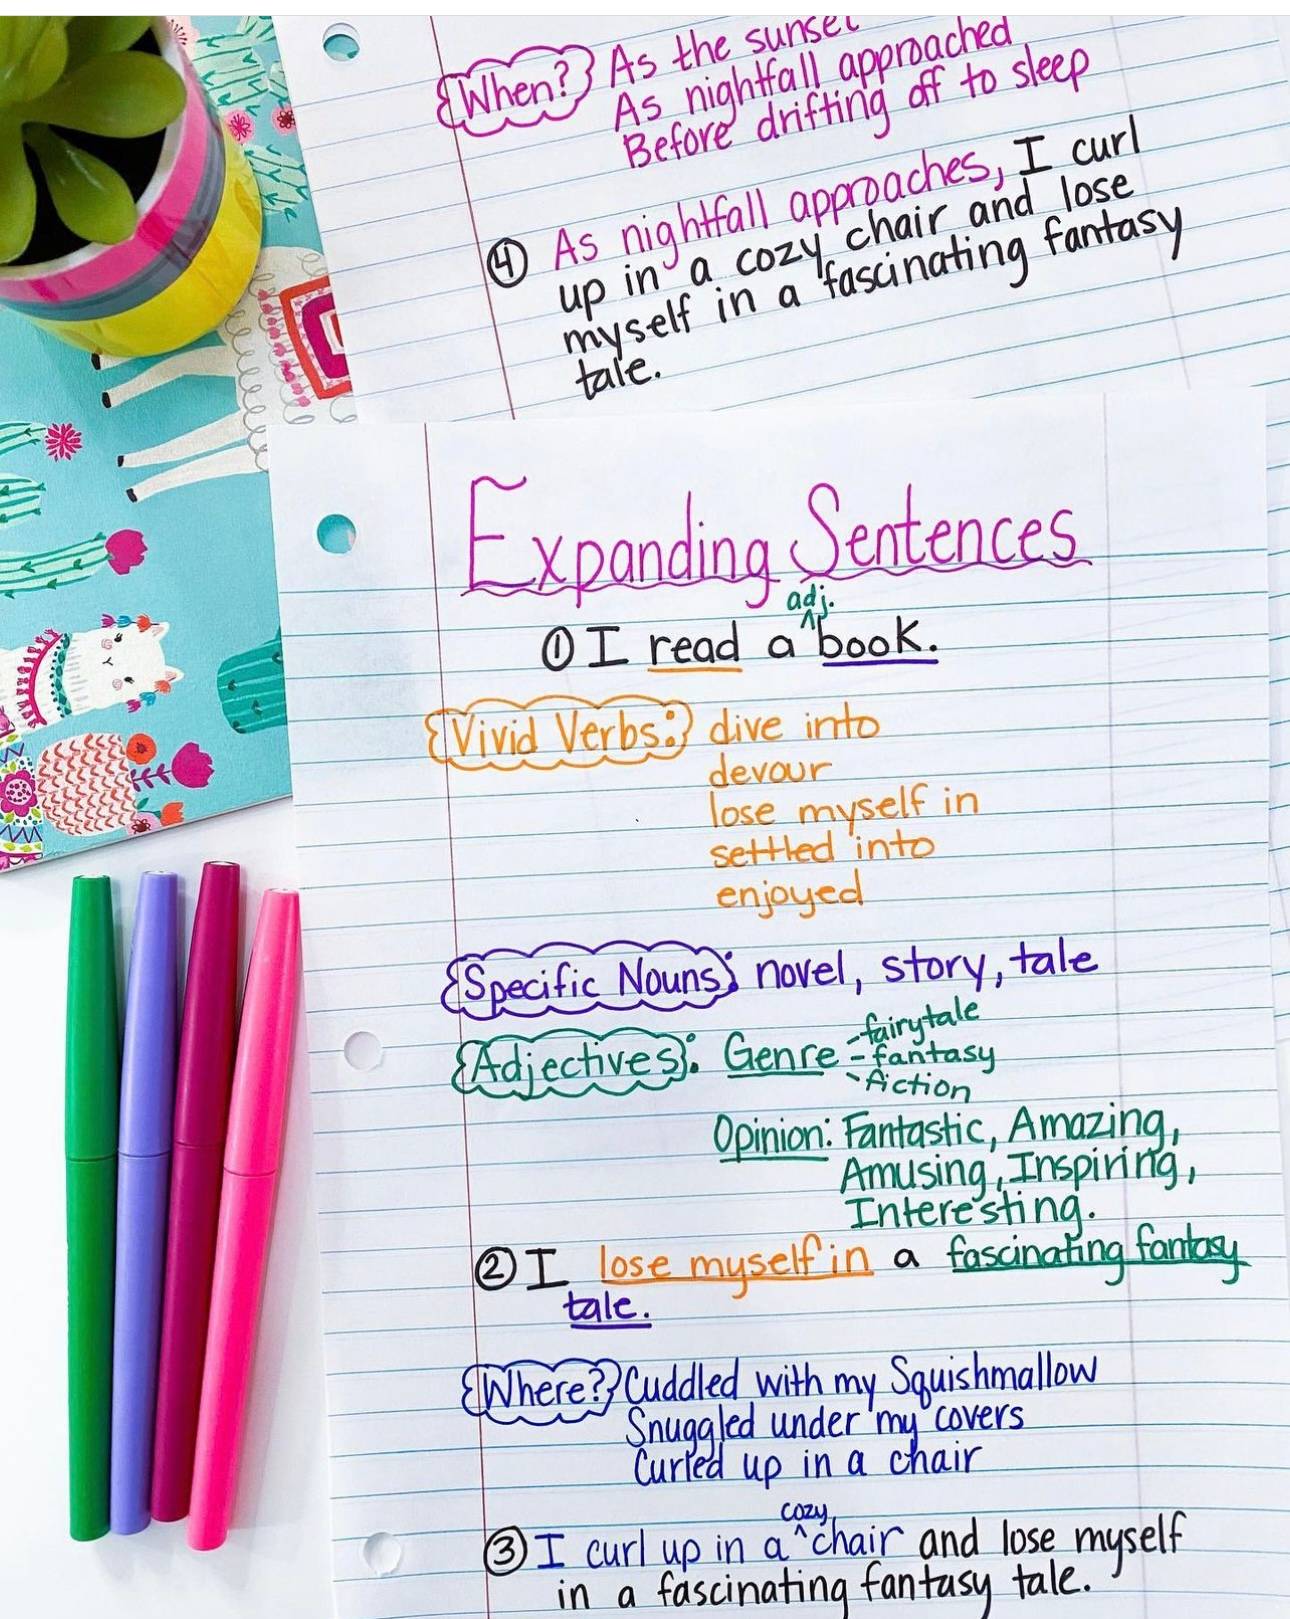 When? As the sunset
As nightfall approached
Before drifting off to sleep
④ As nightfall approaches, I curl
up in a cozy chair and lose
myself in a fascinating fantasy
tale.
Expanding Sentences
adj.
① I read a ^ book.
Vivid Verbs: dive into
devour
lose myself in
settled into
enjoyed
Specific Nouns: novel, story, tale
Adjectives: Genre - fairytale
- fantasy
- fiction
Opinion: Fantastic, Amazing,
Amusing, Inspiring,
Interesting.
② I lose myself in a fascinating fantasy
tale.
Where? Cuddled with my Squishmallow
Snuggled under my covers
Curled up in a chair
cozy
③ I curl up in a ^ chair and lose myself
in a fascinating fantasy tale.